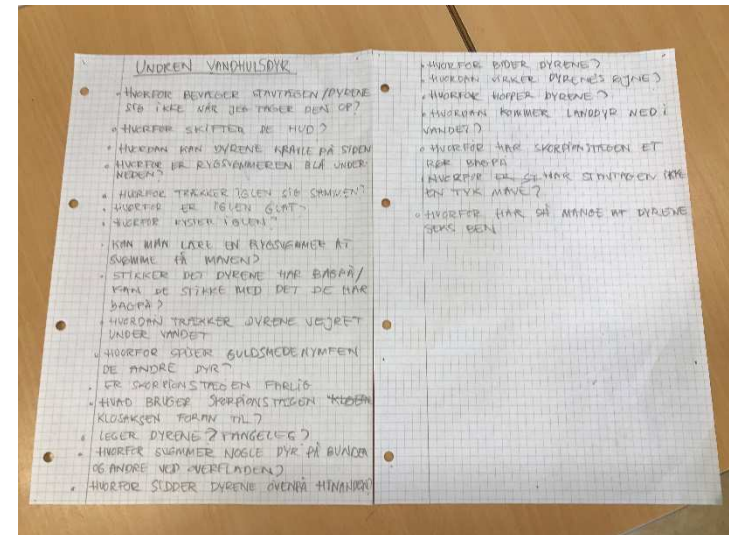 UNDREN VANDHULSDYR
• HVORFOR BEVÆGER STAVTÆGEN/DYRENE
SIG IKKE NÅR JEG TAGER DEN OP?
• HVORFOR SKIFTER DE HUD?
• HVORDAN KAN DYRENE KRAVLE PÅ SIDEN
• HVORFOR ER RYGSVØMMEREN BLÅ UNDER-
NEDEN?
• HVORFOR TRÆKKER IGLEN SIG SAMMEN?
• HVORFOR ER IGLEN GLAT?
• HVORFOR IGLEN?
• KAN MAN LÆRE EN RYGSVØMMER AT
SVØMME PÅ MAVEN?
• STIKKER DET DYRENE HAR BAGPÅ/
KAN DE STIKKE MED DET DE HAR
BAGPÅ?
• HVORDAN TRÆKKER DYRENE VEJRET
UNDER VANDET
• HVORFOR SPISER GULDSMEDENYMFEN
DE ANDRE DYR?
• ER SKORPIONSTÆGEN FARLIG
• HVAD BRUGER SKORPIONSTÆGEN
KLOSAKSEN FORAN TIL?
• LEGER DYRENE? FANGELEG?
• HVORFOR SVØMMER NOGLE DYR PÅ BUNDEN
OG ANDRE VED OVERFLADEN?
• HVORFOR SIDDER DYRENE OVENPÅ HINANDEN?
• HVORFOR BIDER DYRENE?
• HVORDAN VIRKER DYRENES ØJNE?
• HVORFOR HOPPER DYRENE?
• HVORDAN KOMMER LANDDYR NED I
VANDET?
• HVORFOR HAR SKORPIONSTÆGEN ET
RØR BAGPÅ
• HVORFOR HAR STAVTÆGEN IKKE
EN TYK MAVE?
• HVORFOR HAR SÅ MANGE AF DYRENE
SEKS BEN